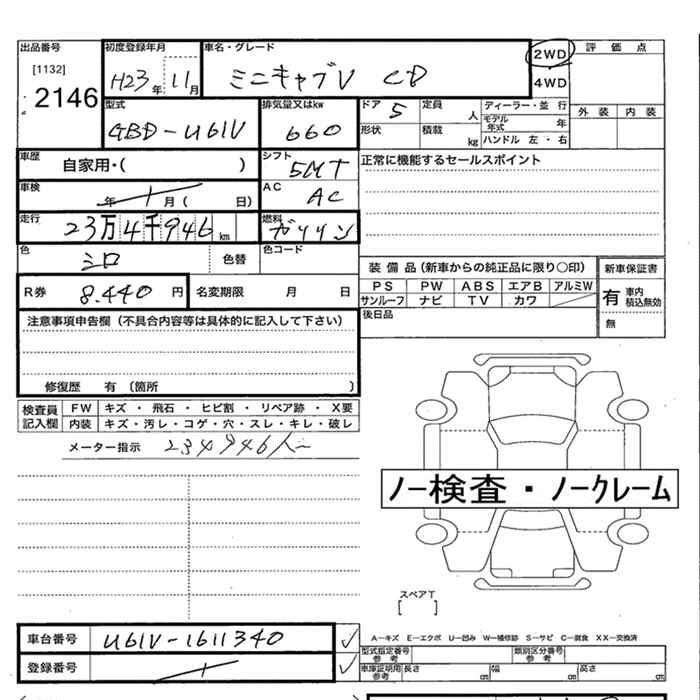 出品番号 初度登録年月 車名・グレード 2WD 評価点
[1132] H23年 11月 ミニキャブV CD 4WD
2146 外装 内装
型式 排気量又はkw ドア 5 定員 人 ディーラー・並行
GBD-U61V 660 形状 積載 kg モデル年式 年
ハンドル 左・右
車歴 自家用・( ) シフト 5MT 正常に機能するセールスポイント
車検 年 月 ( 日) AC AC
走行 23万4千946km 燃料 ガソリン
色 シロ 色替 色コード 装備品(新車からの純正品に限り○印) 新車保証書
R券 8.440円 名変期限 月 日 PS PW ABS エアB アルミW 有 車内積込無効
サンルーフ ナビ TV カワ
注意事項申告欄(不具合内容等は具体的に記入して下さい) 後日品 無
修復歴 有 (箇所 )
検査員記入欄 FW キズ・飛石・ヒビ割・リペア跡・X要
内装 キズ・汚レ・コゲ・穴・スレ・キレ・破レ
メーター指示 234946
ノー検査・ノークレーム
スペアT
[ ]
車台番号 U61V-1611340
A-キズ E-エクボ U-凹み W-補修跡 S-サビ C-腐食 XX-交換済
登録番号
型式指定番号 参考 類別区分番号 参考
車庫証明用 参考 長さ cm 幅 cm 高さ cm